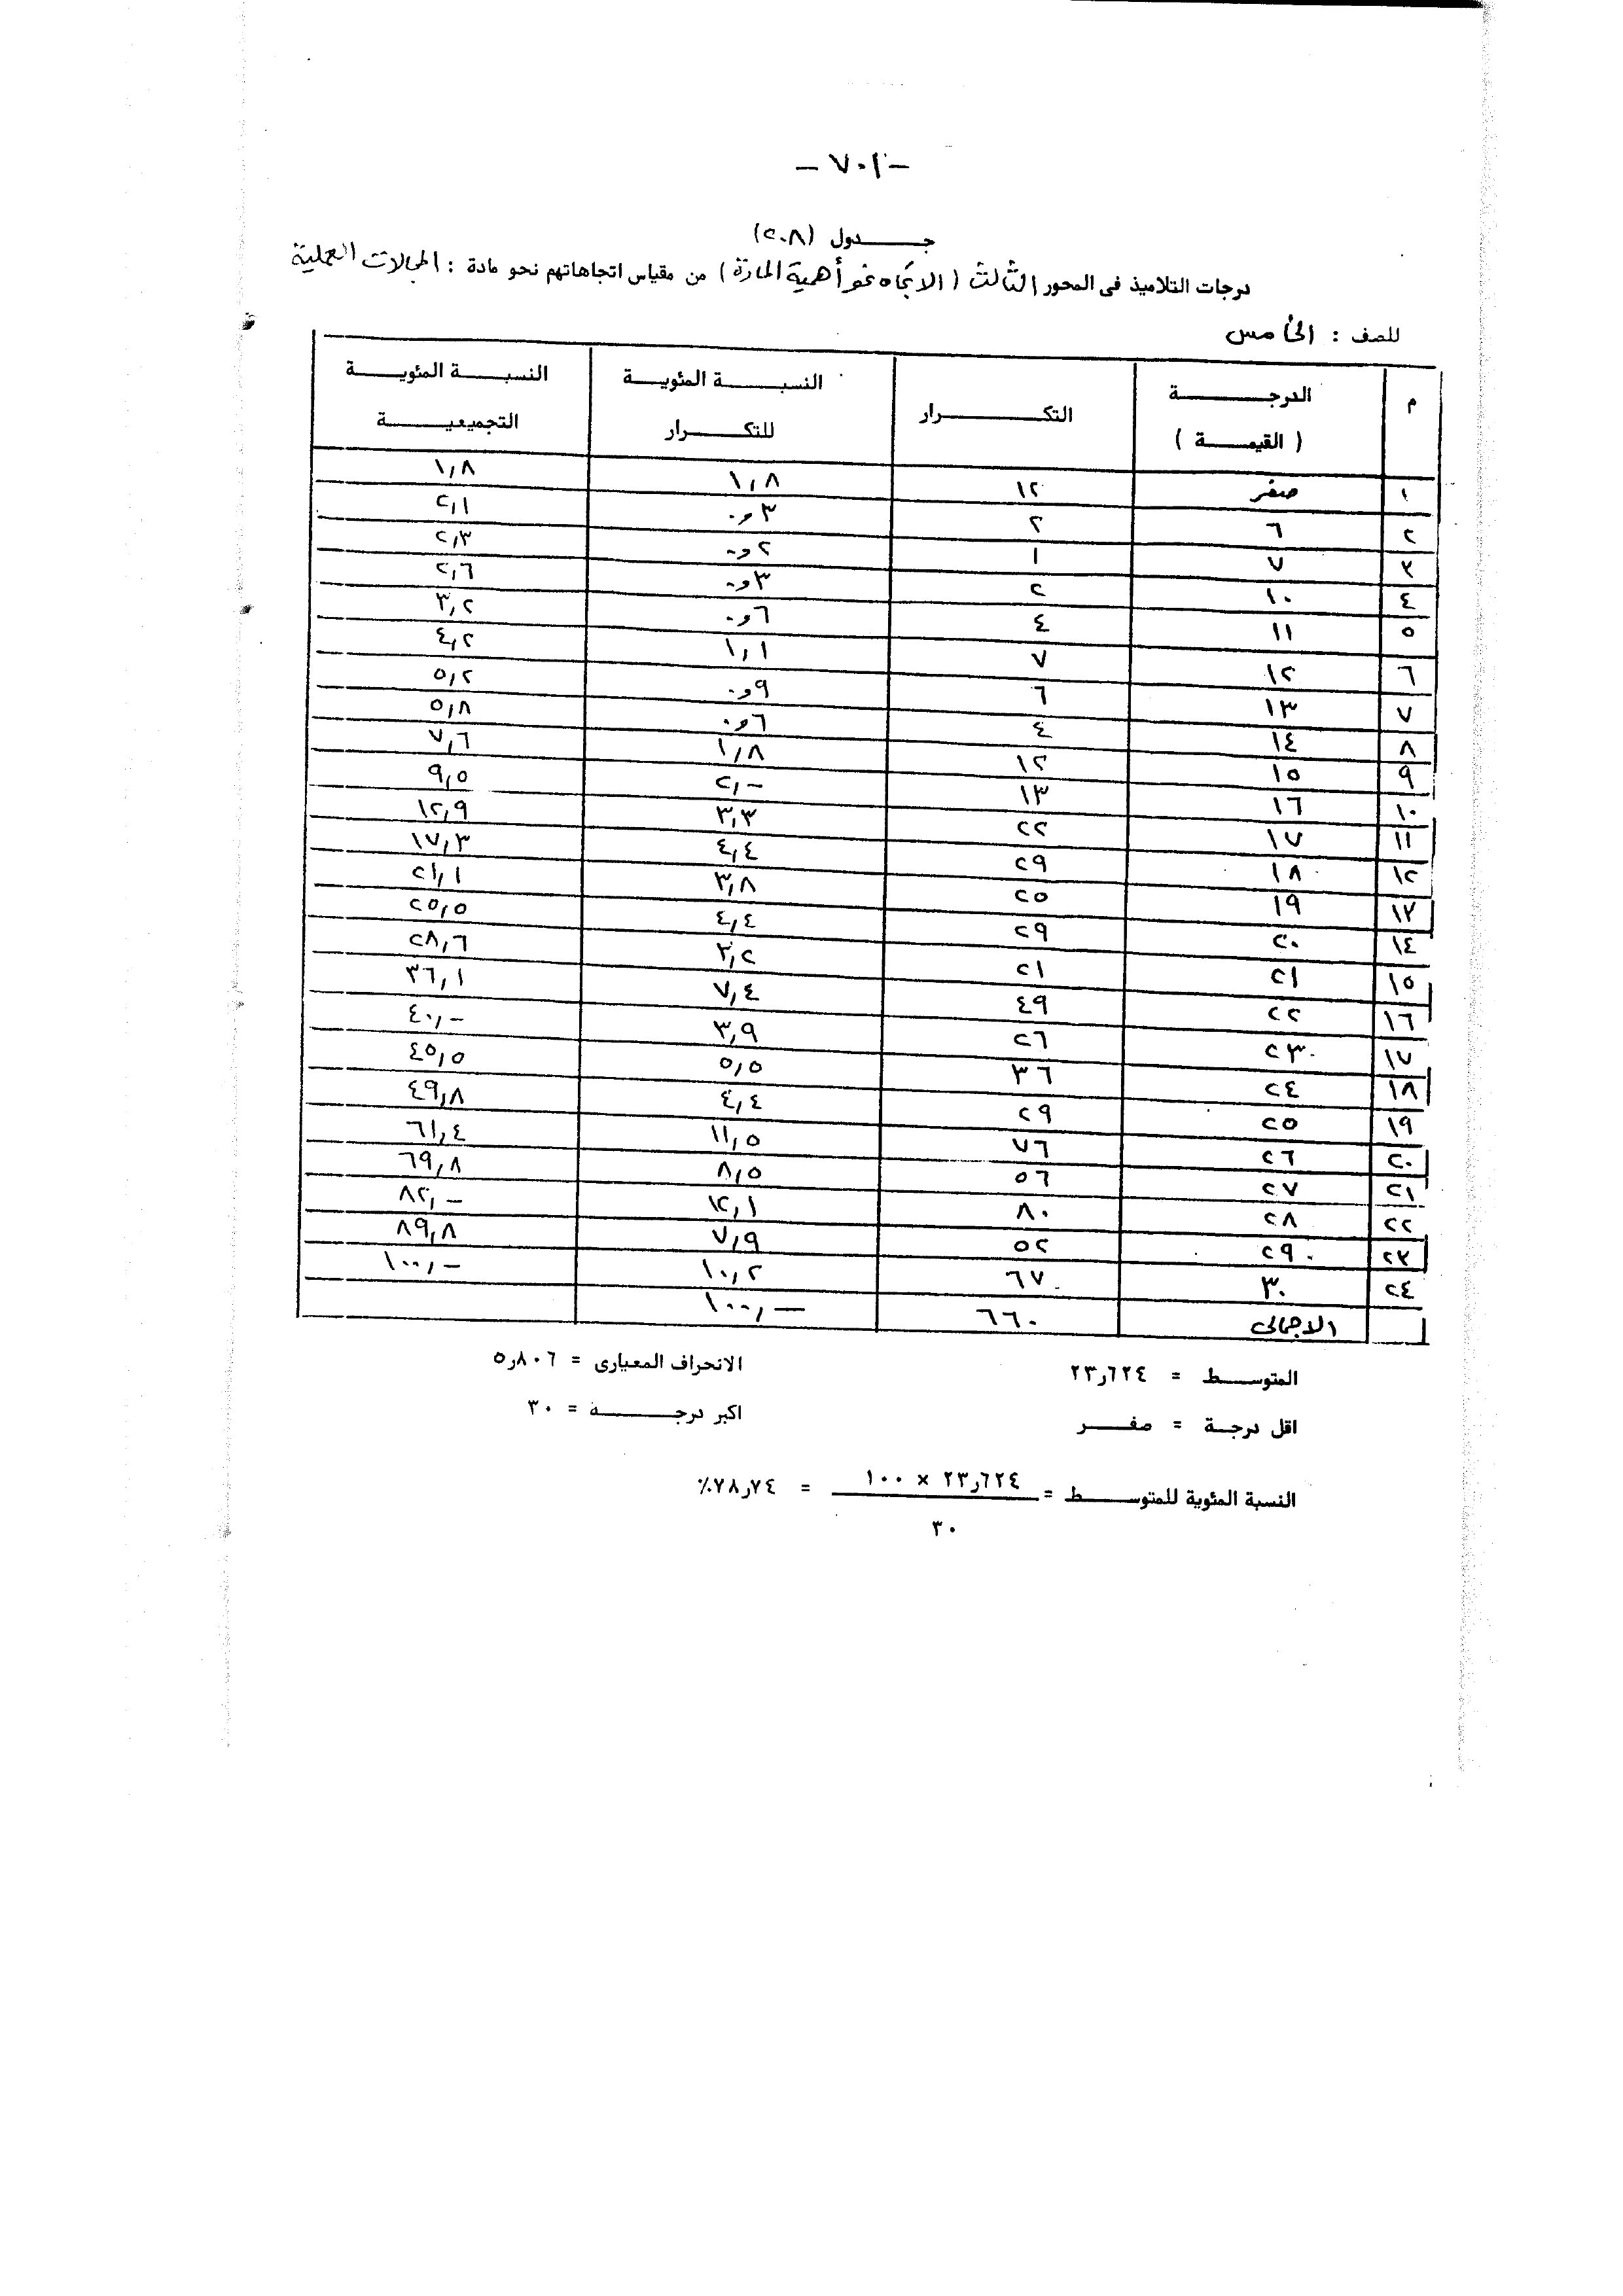 -٧٠١-
جـــدول (٢٠٨)
درجات التلاميذ فى المحور الثالث (الاتجاه نحو أهمية المادة) من مقياس اتجاهاتهم نحو مادة : المجالات العملية
للصف : الخامس
م الدرجـــة ( القيمـــة ) التكـــرار النسبـــة المئويـــة للتكـــرار النسبـــة المئويـــة التجميعيـــة
١ صفر ١٢ ١,٨ ١,٨
٢ ٦ ٢ ٣و٠ ٢,١
٣ ٧ ١ ٢و٠ ٢,٣
٤ ١٠ ٢ ٣و٠ ٢,٦
٥ ١١ ٤ ٦و٠ ٣,٢
٦ ١٢ ٧ ١,١ ٤,٢
٧ ١٣ ٦ ٩و٠ ٥,٢
٨ ١٤ ٤ ٦و٠ ٥,٨
٩ ١٥ ١٢ ١,٨ ٧,٦
١٠ ١٦ ١٣ ٢,- ٩,٥
١١ ١٧ ٢٢ ٣,٣ ١٢,٩
١٢ ١٨ ٢٩ ٤,٤ ١٧,٣
١٣ ١٩ ٢٥ ٣,٨ ٢١,١
١٤ ٢٠ ٢٩ ٤,٤ ٢٥,٥
١٥ ٢١ ٢١ ٣,٢ ٢٨,٦
١٦ ٢٢ ٤٩ ٧,٤ ٣٦,١
١٧ ٢٣ ٢٦ ٣,٩ ٤٠,-
١٨ ٢٤ ٣٦ ٥,٥ ٤٥,٥
١٩ ٢٥ ٢٩ ٤,٤ ٤٩,٨
٢٠ ٢٦ ٧٦ ١١,٥ ٦١,٤
٢١ ٢٧ ٥٦ ٨,٥ ٦٩,٨
٢٢ ٢٨ ٨٠ ١٢,١ ٨٢,-
٢٣ ٢٩ ٥٢ ٧,٩ ٨٩,٨
٢٤ ٣٠ ٦٧ ١٠,٢ ١٠٠,-
الاجمالى ٦٦٠ ١٠٠,-
المتوســط = ٢٣٫٦٢٤ الانحراف المعيارى = ٥٫٨٠٦
اقل درجـة = صفـــر اكبر درجـــة = ٣٠
النسبة المئوية للمتوســط = ٢٣٫٦٢٤ × ١٠٠ = ٧٨٫٧٤٪
٣٠